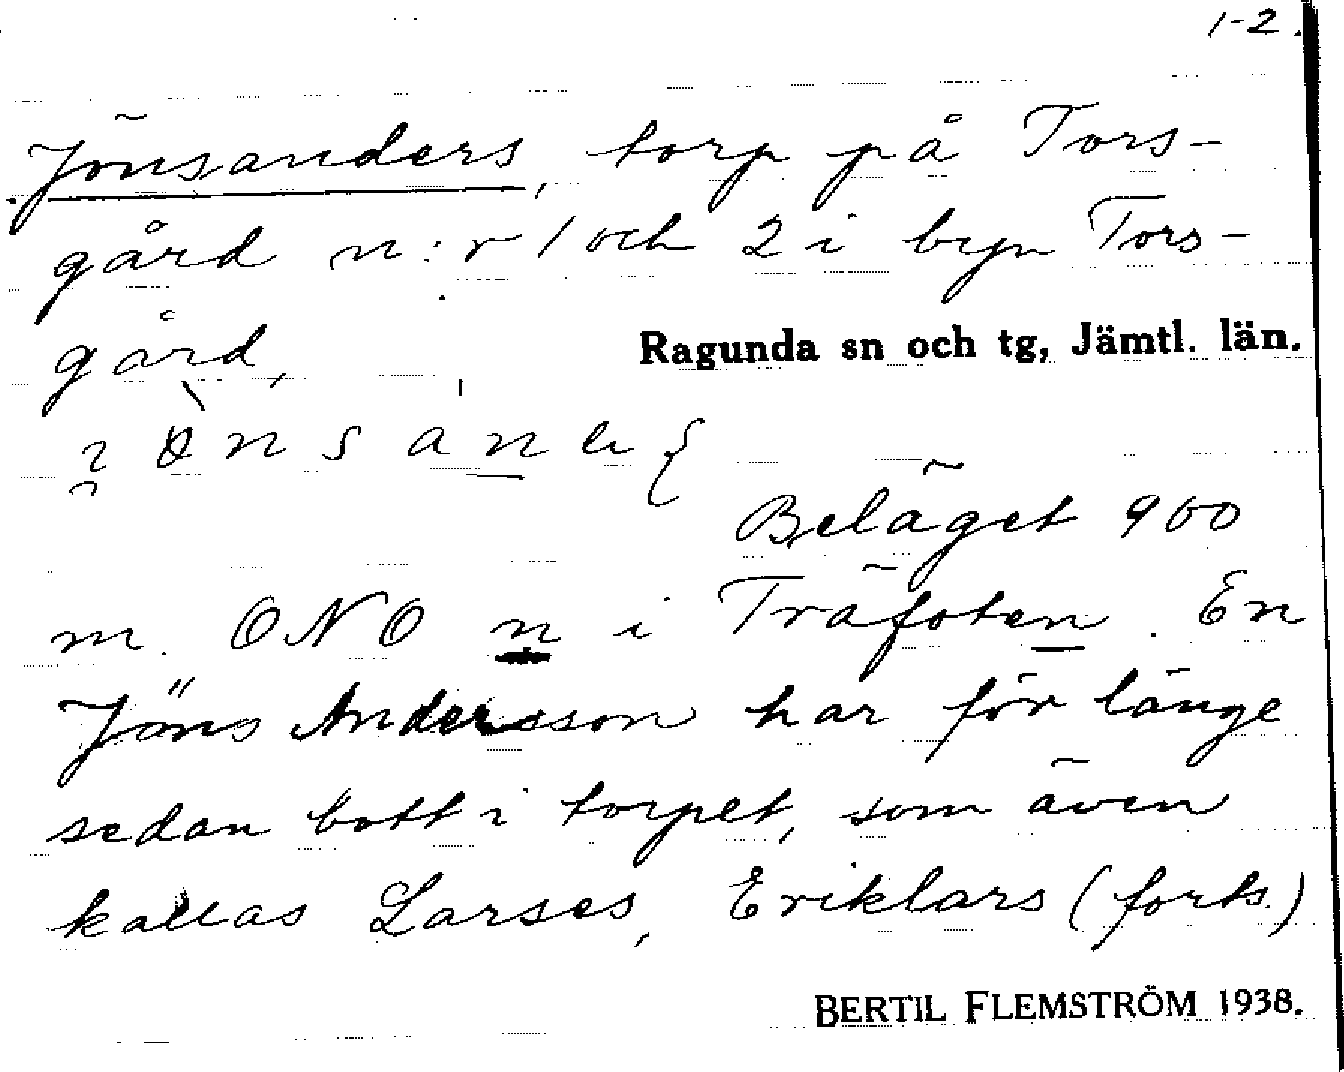 1-2.
Jönsanders, torp på Tors-
gård n:r 1 och 2 i byn Tors-
gård,
Ragunda sn och tg, Jämtl. län.
Beläget 900
m. ONO n i Träfoten. En
Jöns Andersson har för länge
sedan bott i torpet, som även
kallas Larses, Eriklars (forts.)
BERTIL FLEMSTRÖM 1938.